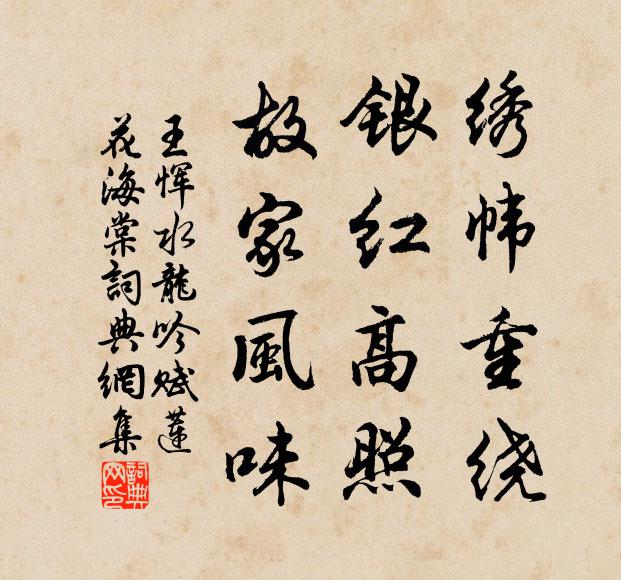 绣帏重绕
银红高照
故家風味
王恽水龍吟赋蓮
花海棠詞典網集
詞典
网印